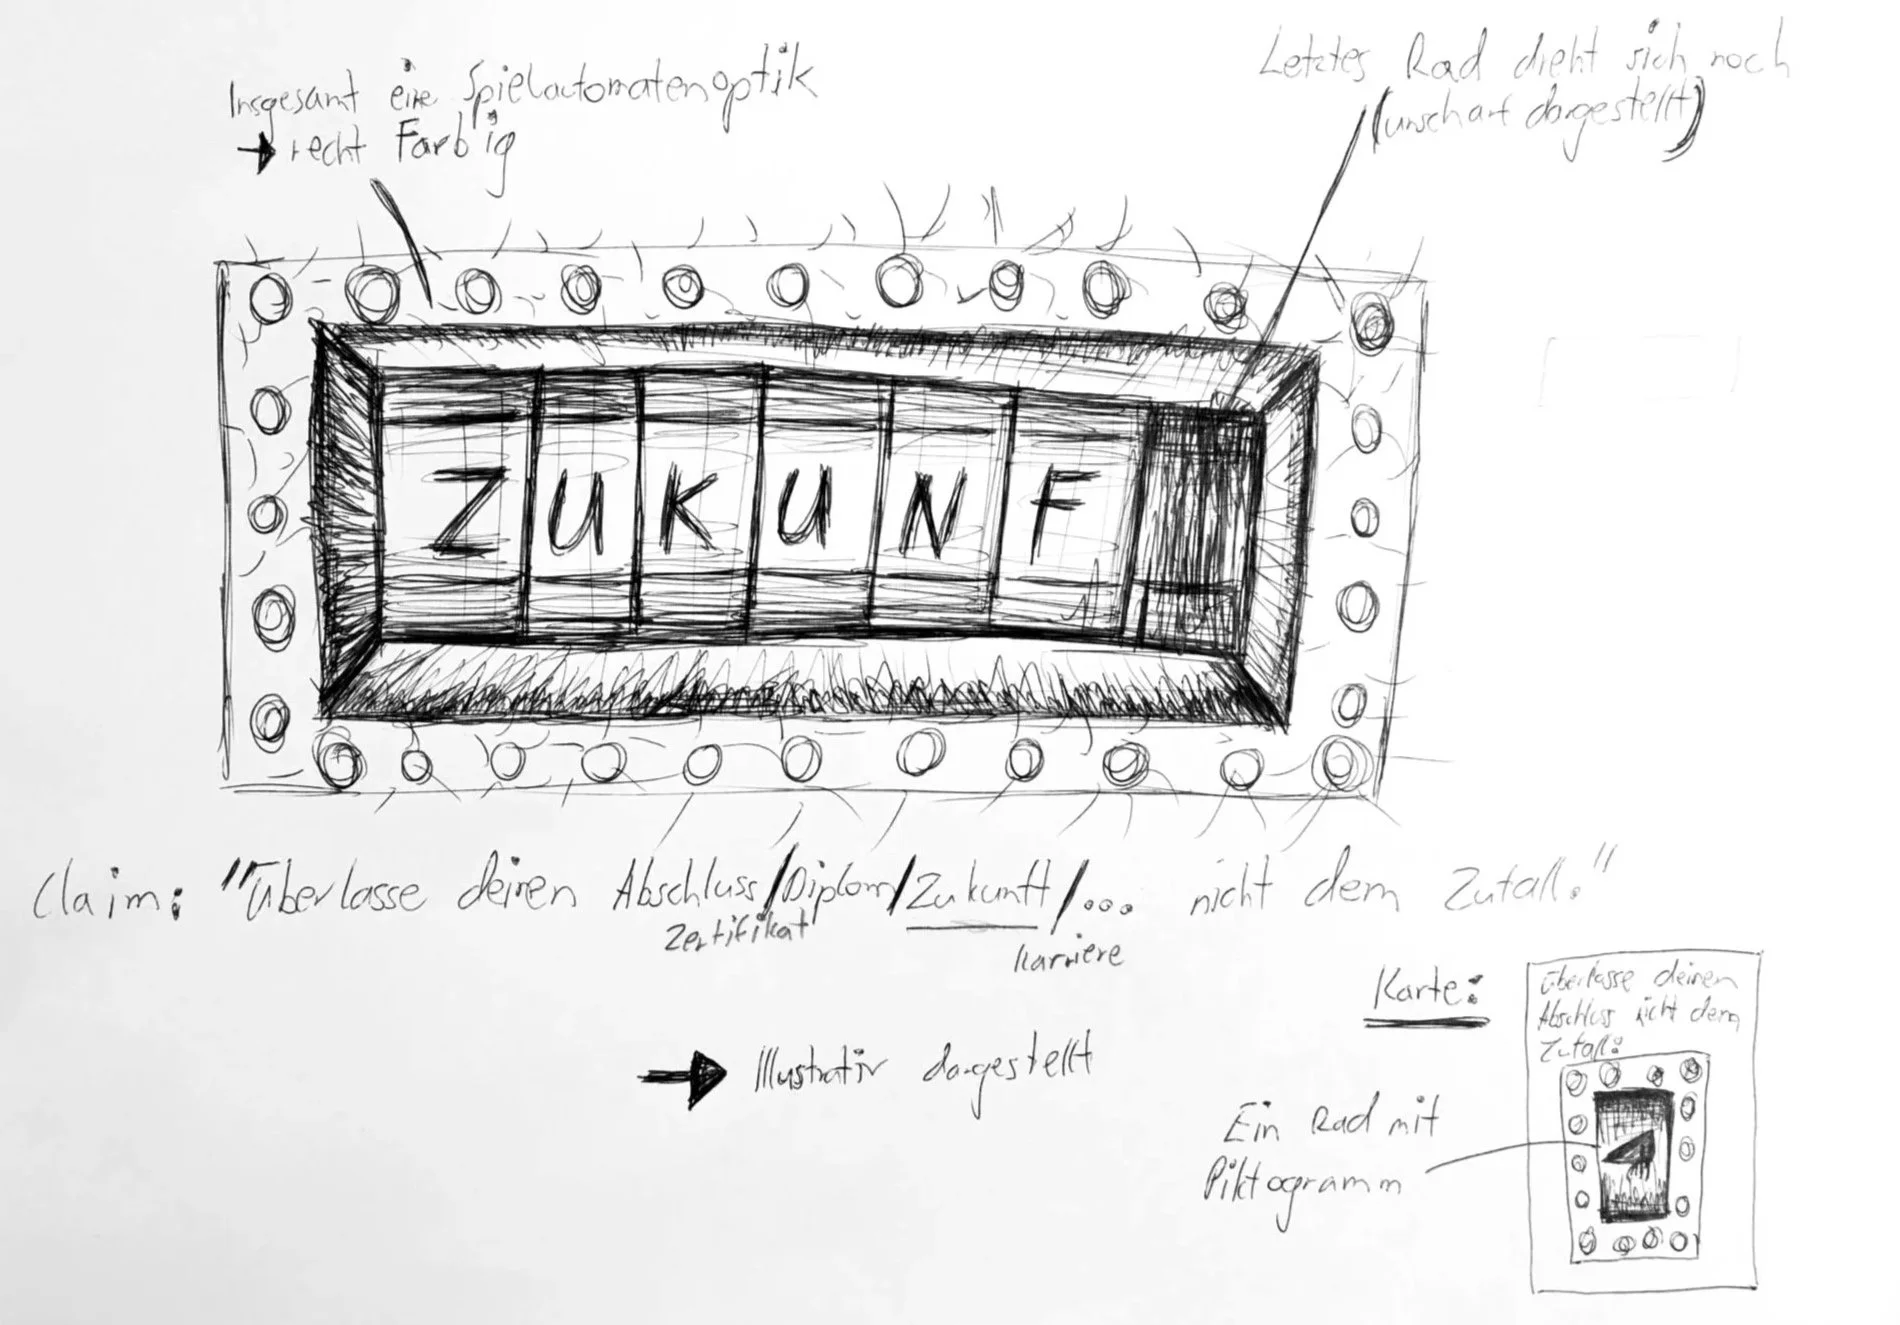 Insgesamt eine Spielautomatenoptik
→ recht Farbig
Letztes Rad dreht sich noch
(unscharf dargestellt)
ZUKUNF
Claim: "Überlasse deinen Abschluss/Diplom/Zukunft/... nicht dem Zufall."
Zertifikat
Karriere
→ Illustrativ dargestellt
Karte:
Überlasse deinen
Abschluss nicht dem
Zufall.
Ein Rad mit
Piktogramm